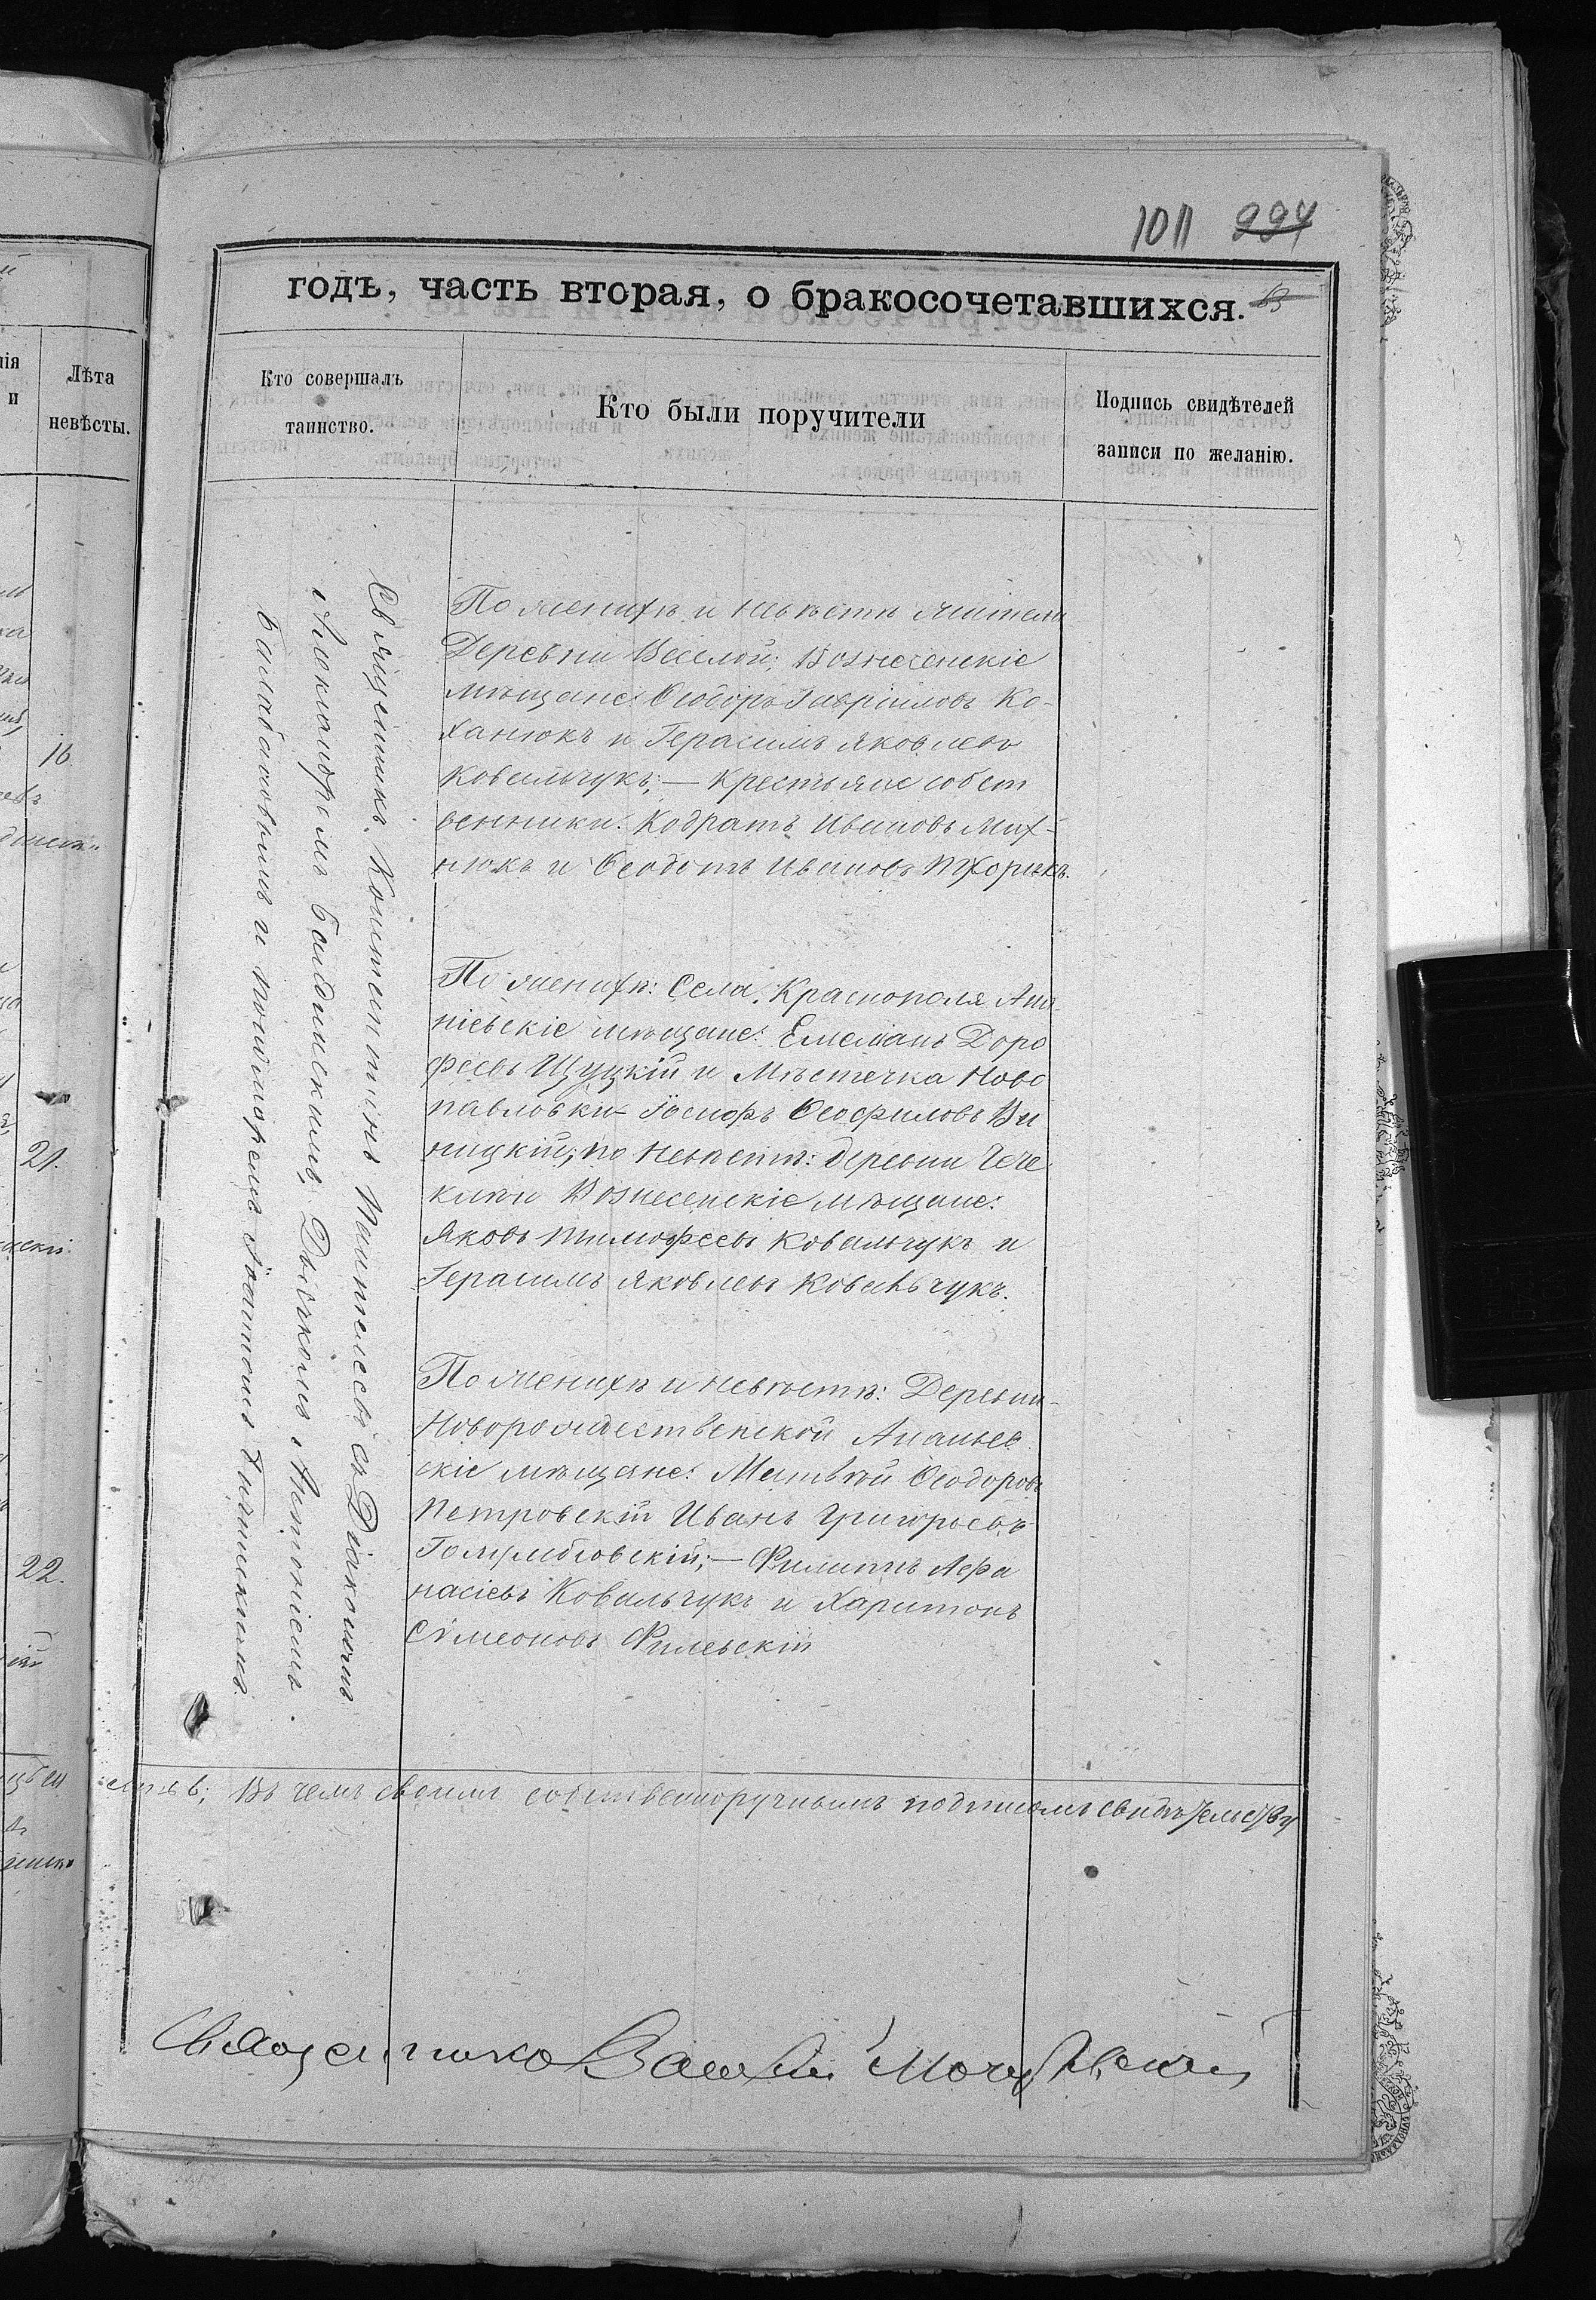 1011 994
годъ, часть вторая, о бракосочетавшихся.
Лѣта
невѣсты.
Кто совершалъ
таинство.
Кто были поручители
Подпись свидѣтелей
записи по желанію.
16.
21.
22.
Священникъ Константинъ Пантелеевъ съ Діакономъ
Александромъ Балдинскимъ, Дьячкомъ Антоніемъ
Балабановымъ и пономаремъ
По женихѣ и невѣстѣ жители
Деревни Веселой; Вознесенскіе
мѣщане: Ѳеодоръ Гавріиловъ Ко-
ханюкъ и Герасимъ Яковлевъ
Ковальчукъ; — крестьяне собст
венники: Кодратъ Ивановъ Мих-
нюкъ и Ѳеодотъ Ивановъ Тхорикъ.
По женихѣ: Села Краснополя Ана
ніевскіе мѣщане: Емеліанъ Доро
феевъ Щуцкій и Мѣстечка Ново
павловки – Іосифъ Ѳеофиловъ Ви
ницкій; по невѣстѣ: деревни
Вознесенскіе мѣщане:
Яковъ Тимофеевъ Ковальчукъ и
Герасимъ Яковлевъ Ковальчукъ.
По женихѣ и невѣстѣ: Деревни
Новорождественской Ананьев
скіе мѣщане: Матвѣй Ѳеодоровъ
Петровскій Иванъ Григорьевъ
Филиппъ Афа
насіевъ Ковальчукъ и Харитонъ
Сѵмеоновъ Филевскій
Въ чемъ своимъ собственоручнымъ подписомъ свидѣтельству
Священникъ